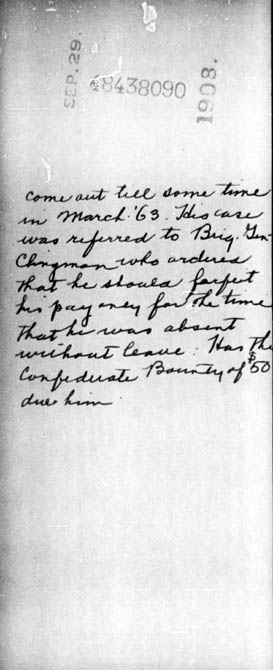 SEP. 29. 1908.
48438090
come out till some time
in March '63. His case
was referred to Brig. Gen
Clingman who ordered
that he should forfeit
his pay oney for the time
that he was absent
without leave. Has the
Confederate Bounty of $50
due him